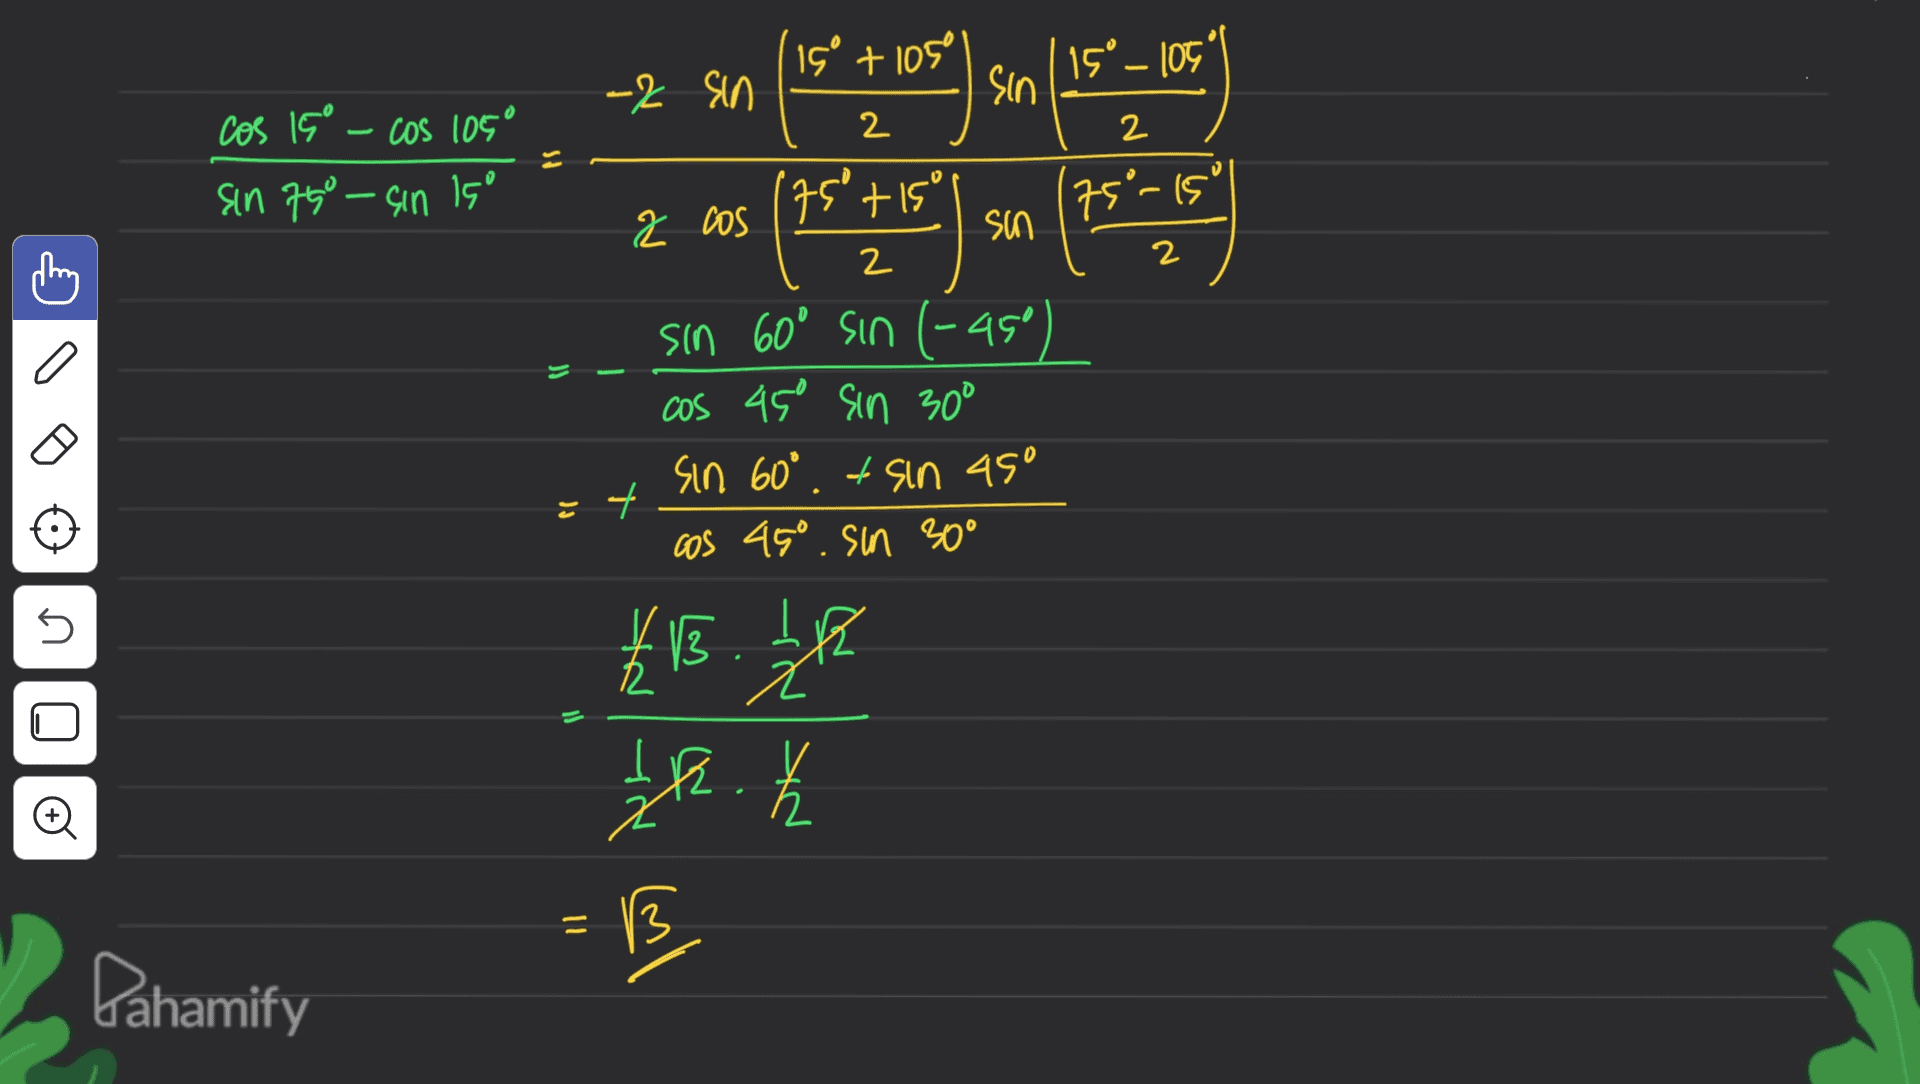 cos 15° – cos 105° / sin 75° – sin 15° = –2 sin ((15° + 105°)/2) sin ((15° – 105°)/2) / 2 cos ((75° + 15°)/2) sin ((75° – 15°)/2)
= – sin 60° sin (–45°) / cos 45° sin 30°
= + sin 60° . + sin 45° / cos 45° . sin 30°
= 1/2 √3 . 1/2 √2 / 1/2 √2 . 1/2
= √3
Pahamify